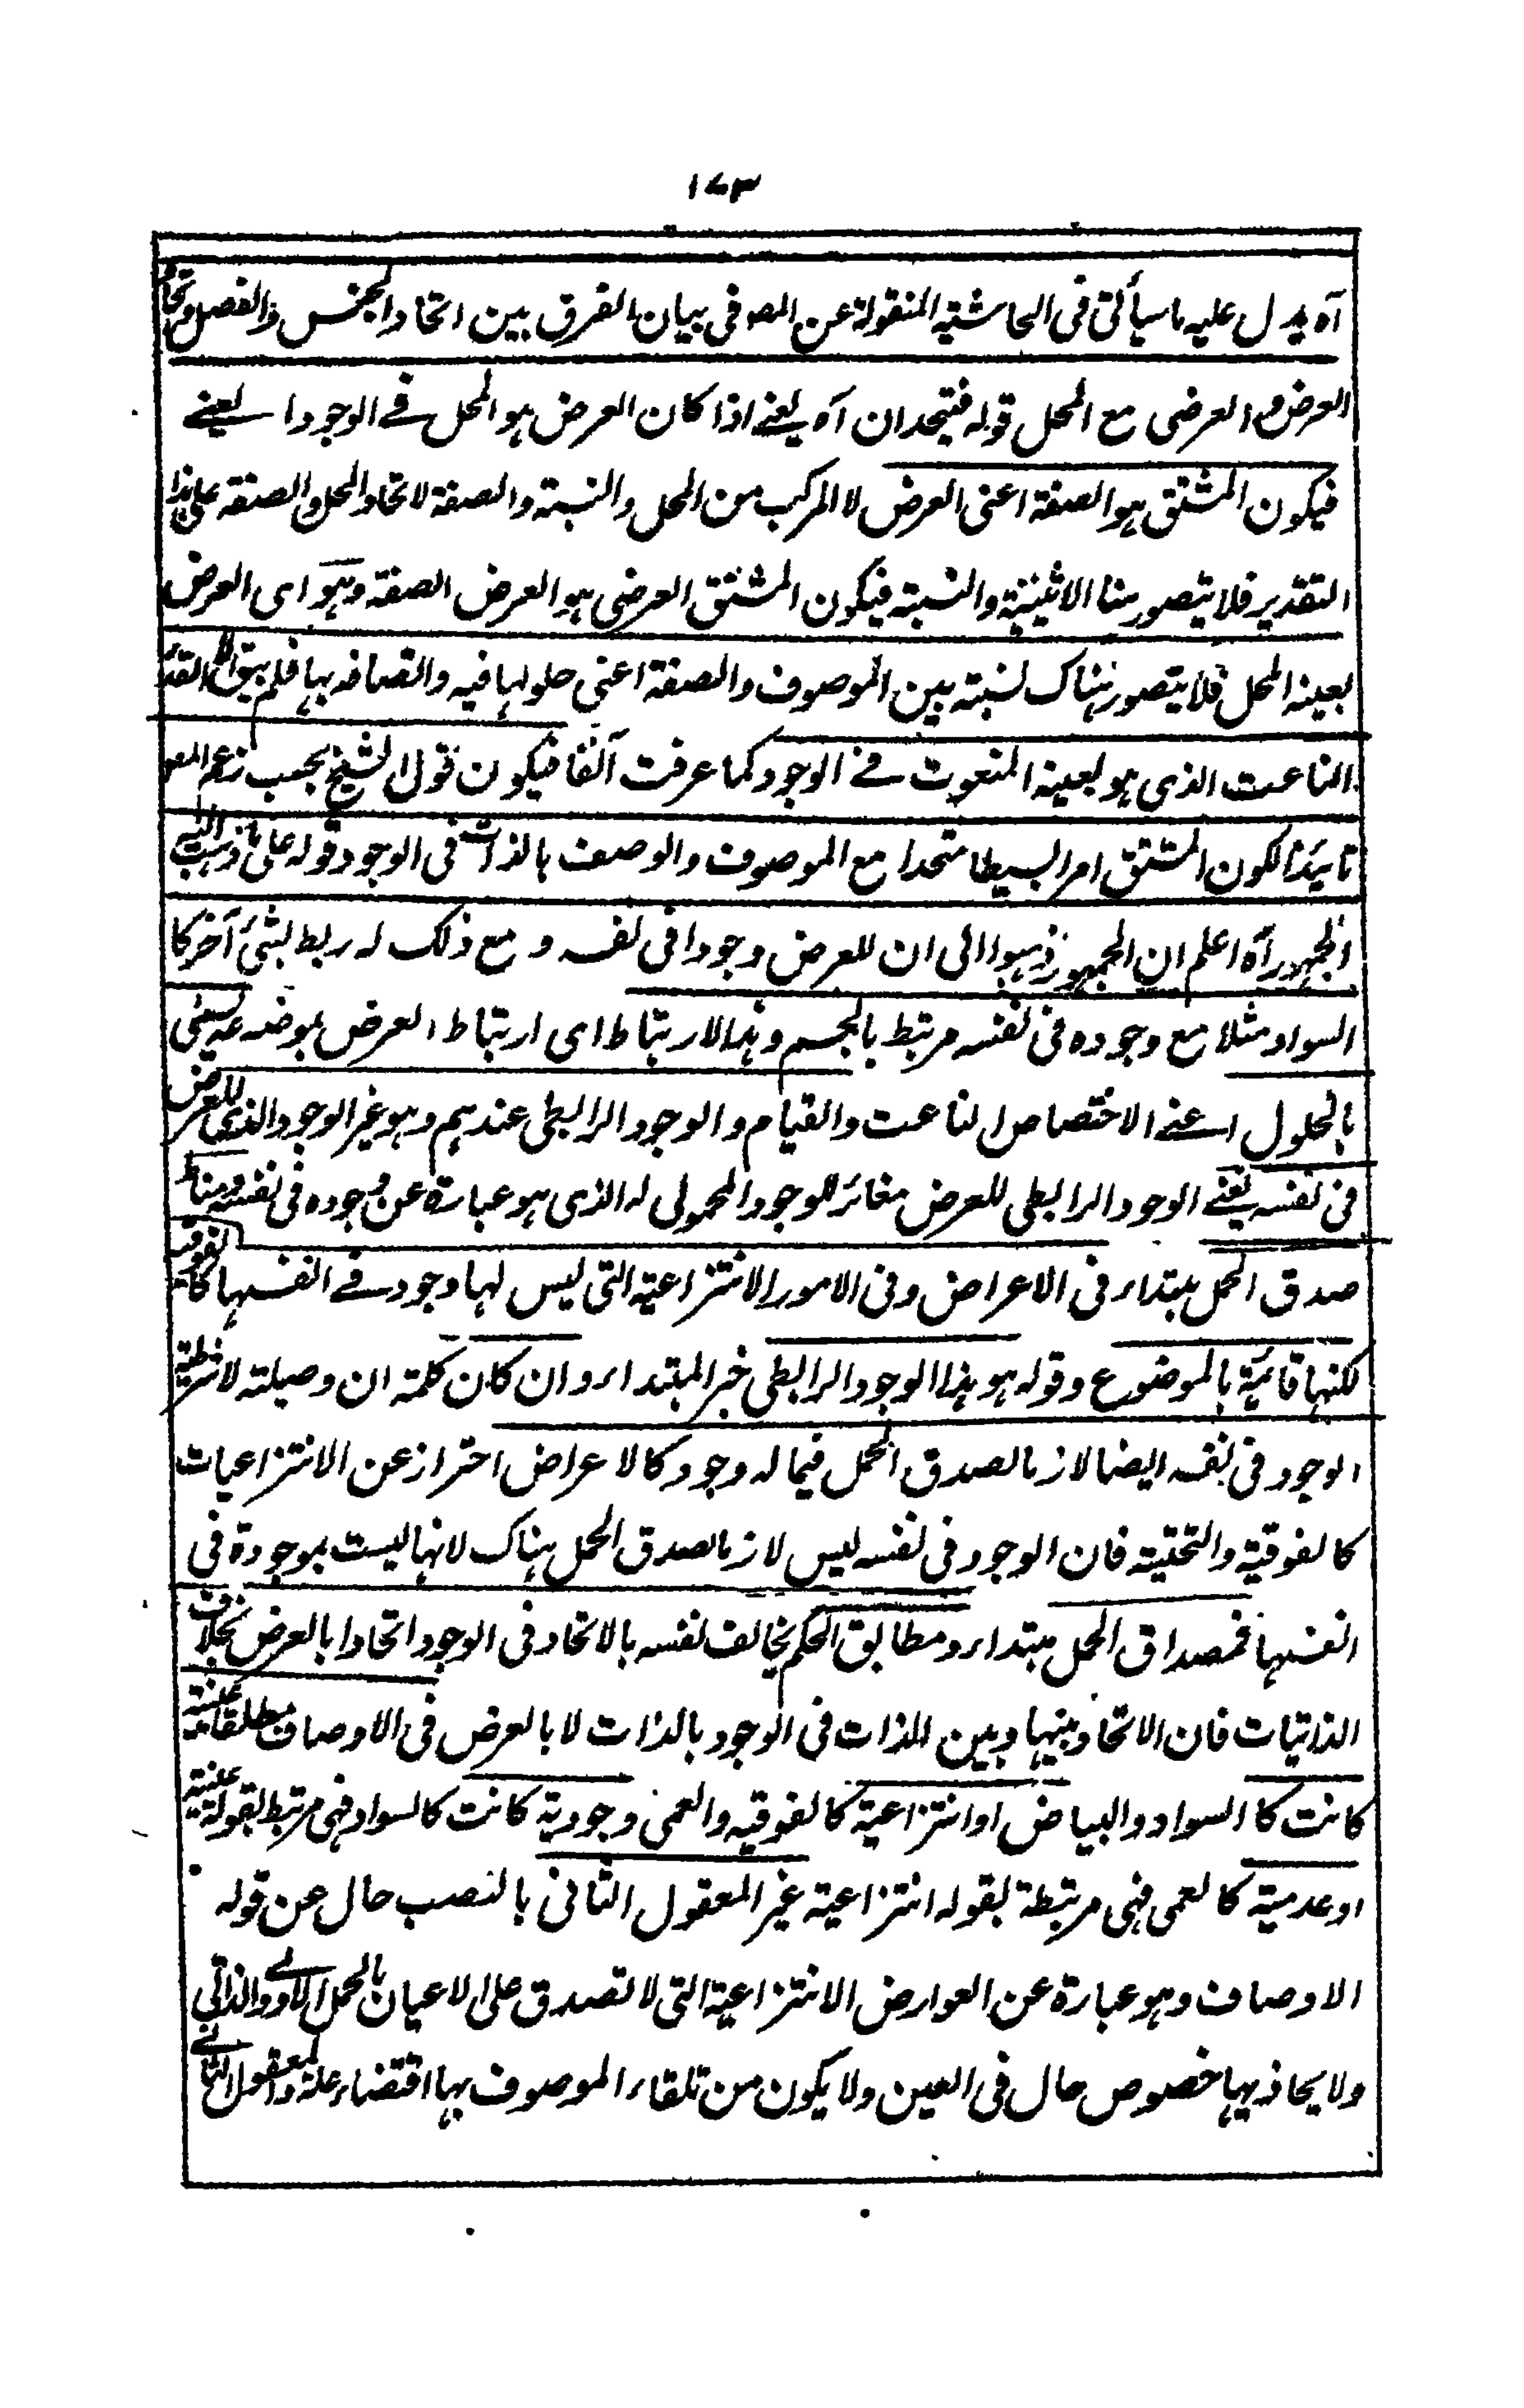 ١٧٣
آه يدل عليه ما سيأتى فى الحاشية المنقولة عن المص فى بيان الفرق بين اتحاد الجنس والفصل واتحاد
العرض والعرضى مع المحل قوله فيتحدان آه يعنے اذا كان العرض هو المحل فے الوجود ا يعنے
فيكون المشتق هو الصفة اعنى العرض لا المركب من المحل والنسبة والصفة لاتحاد المحل والصفة على هذا
التقدير فلا يتصور هنا الاثنينية والنسبة فيكون المشتق العرضى هو العرض الصفة وهو اى العرض
بعينه المحل فلا يتصور هناك نسبته بين الموصوف والصفة اعنى حلولها فيه واتصافه بها فلم يبق
الناعت الذى هو بعينه المنعوت فے الوجود كما عرفت آنفا فيكون قول الشيخ بحسب زعم المص
تائيدا لكون المشتق امرا بسيطا متحدا مع الموصوف والوصف بالذات فى الوجود قوله على ما ذهب اليه
الجمهور آه اعلم ان الجمهور ذهبوا الى ان للعرض وجودا فى نفسه و مع ذلك له ربط بشئ آخر كا
السواد مثلا مع وجوده فى نفسه مرتبط بالجسم وهذا الارتباط اى ارتباط العرض بموضوعه يسمى
بالحلول اے الاختصاص الناعت والقيام والوجود الرابطى عندهم وهو غير الوجود الذى للعرض
فى نفسه يعنے الوجود الرابطى للعرض مغائر للوجود المحمولى له الذى هو عبارة عن وجوده فى نفسه ومناط
صدق الحمل مبتداء فى الاعراض وفى الامور الانتزاعية التى ليس لها وجود فے انفسها كالفوقية
لكنها قائمة بالموضوع وقوله هو هذا الوجود الرابطى خبر المبتداء وان كان كلمة ان وصيلته لا شرطية
الوجود فى نفسه ايضا لازما لصدق الحمل فيما له وجود كالاعراض احتراز عن الانتزاعيات
كالفوقية والتحتية فان الوجود فى نفسه ليس لازما لصدق الحمل هناك لانها ليست بموجودة فى
انفسها فمصداق الحمل مبتداء ومطابق الحكم يخالف نفسه بالاتحاد فى الوجود اتحادا بالعرض بخلاف
الذاتيات فان الاتحاد بينها وبين الذات فى الوجود بالذات لا بالعرض فى الاوصاف مطلقا عينية
كانت كا السواد والبياض او انتزاعية كالفوقيه والعمى وجودية كانت كالسواد فهى مرتبط بقوله عينية
او عدمية كالعمى فهى مرتبطة بقوله انتزاعية غير المعقول الثانى بالنصب حال عن قوله
الاوصاف وهو عبارة عن العوارض الانتزاعية التى لا تصدق على الاعيان بالحمل الاولے والذاتى
ولا يحاذيها خصوص حال فى العين ولا يكون من تلقاء الموصوف بها اقتضاء علة والمعقول الثانے